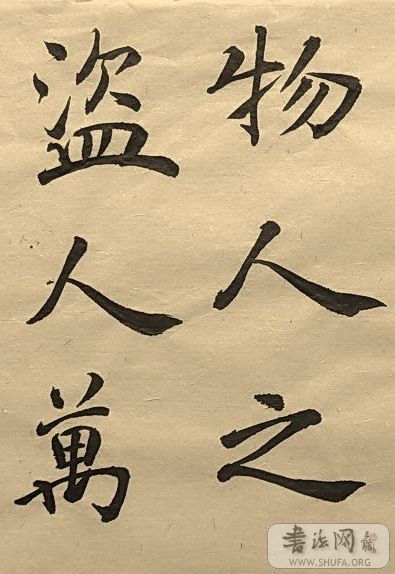 物人之
盜人萬
書法网
WWW.SHUFA.ORG